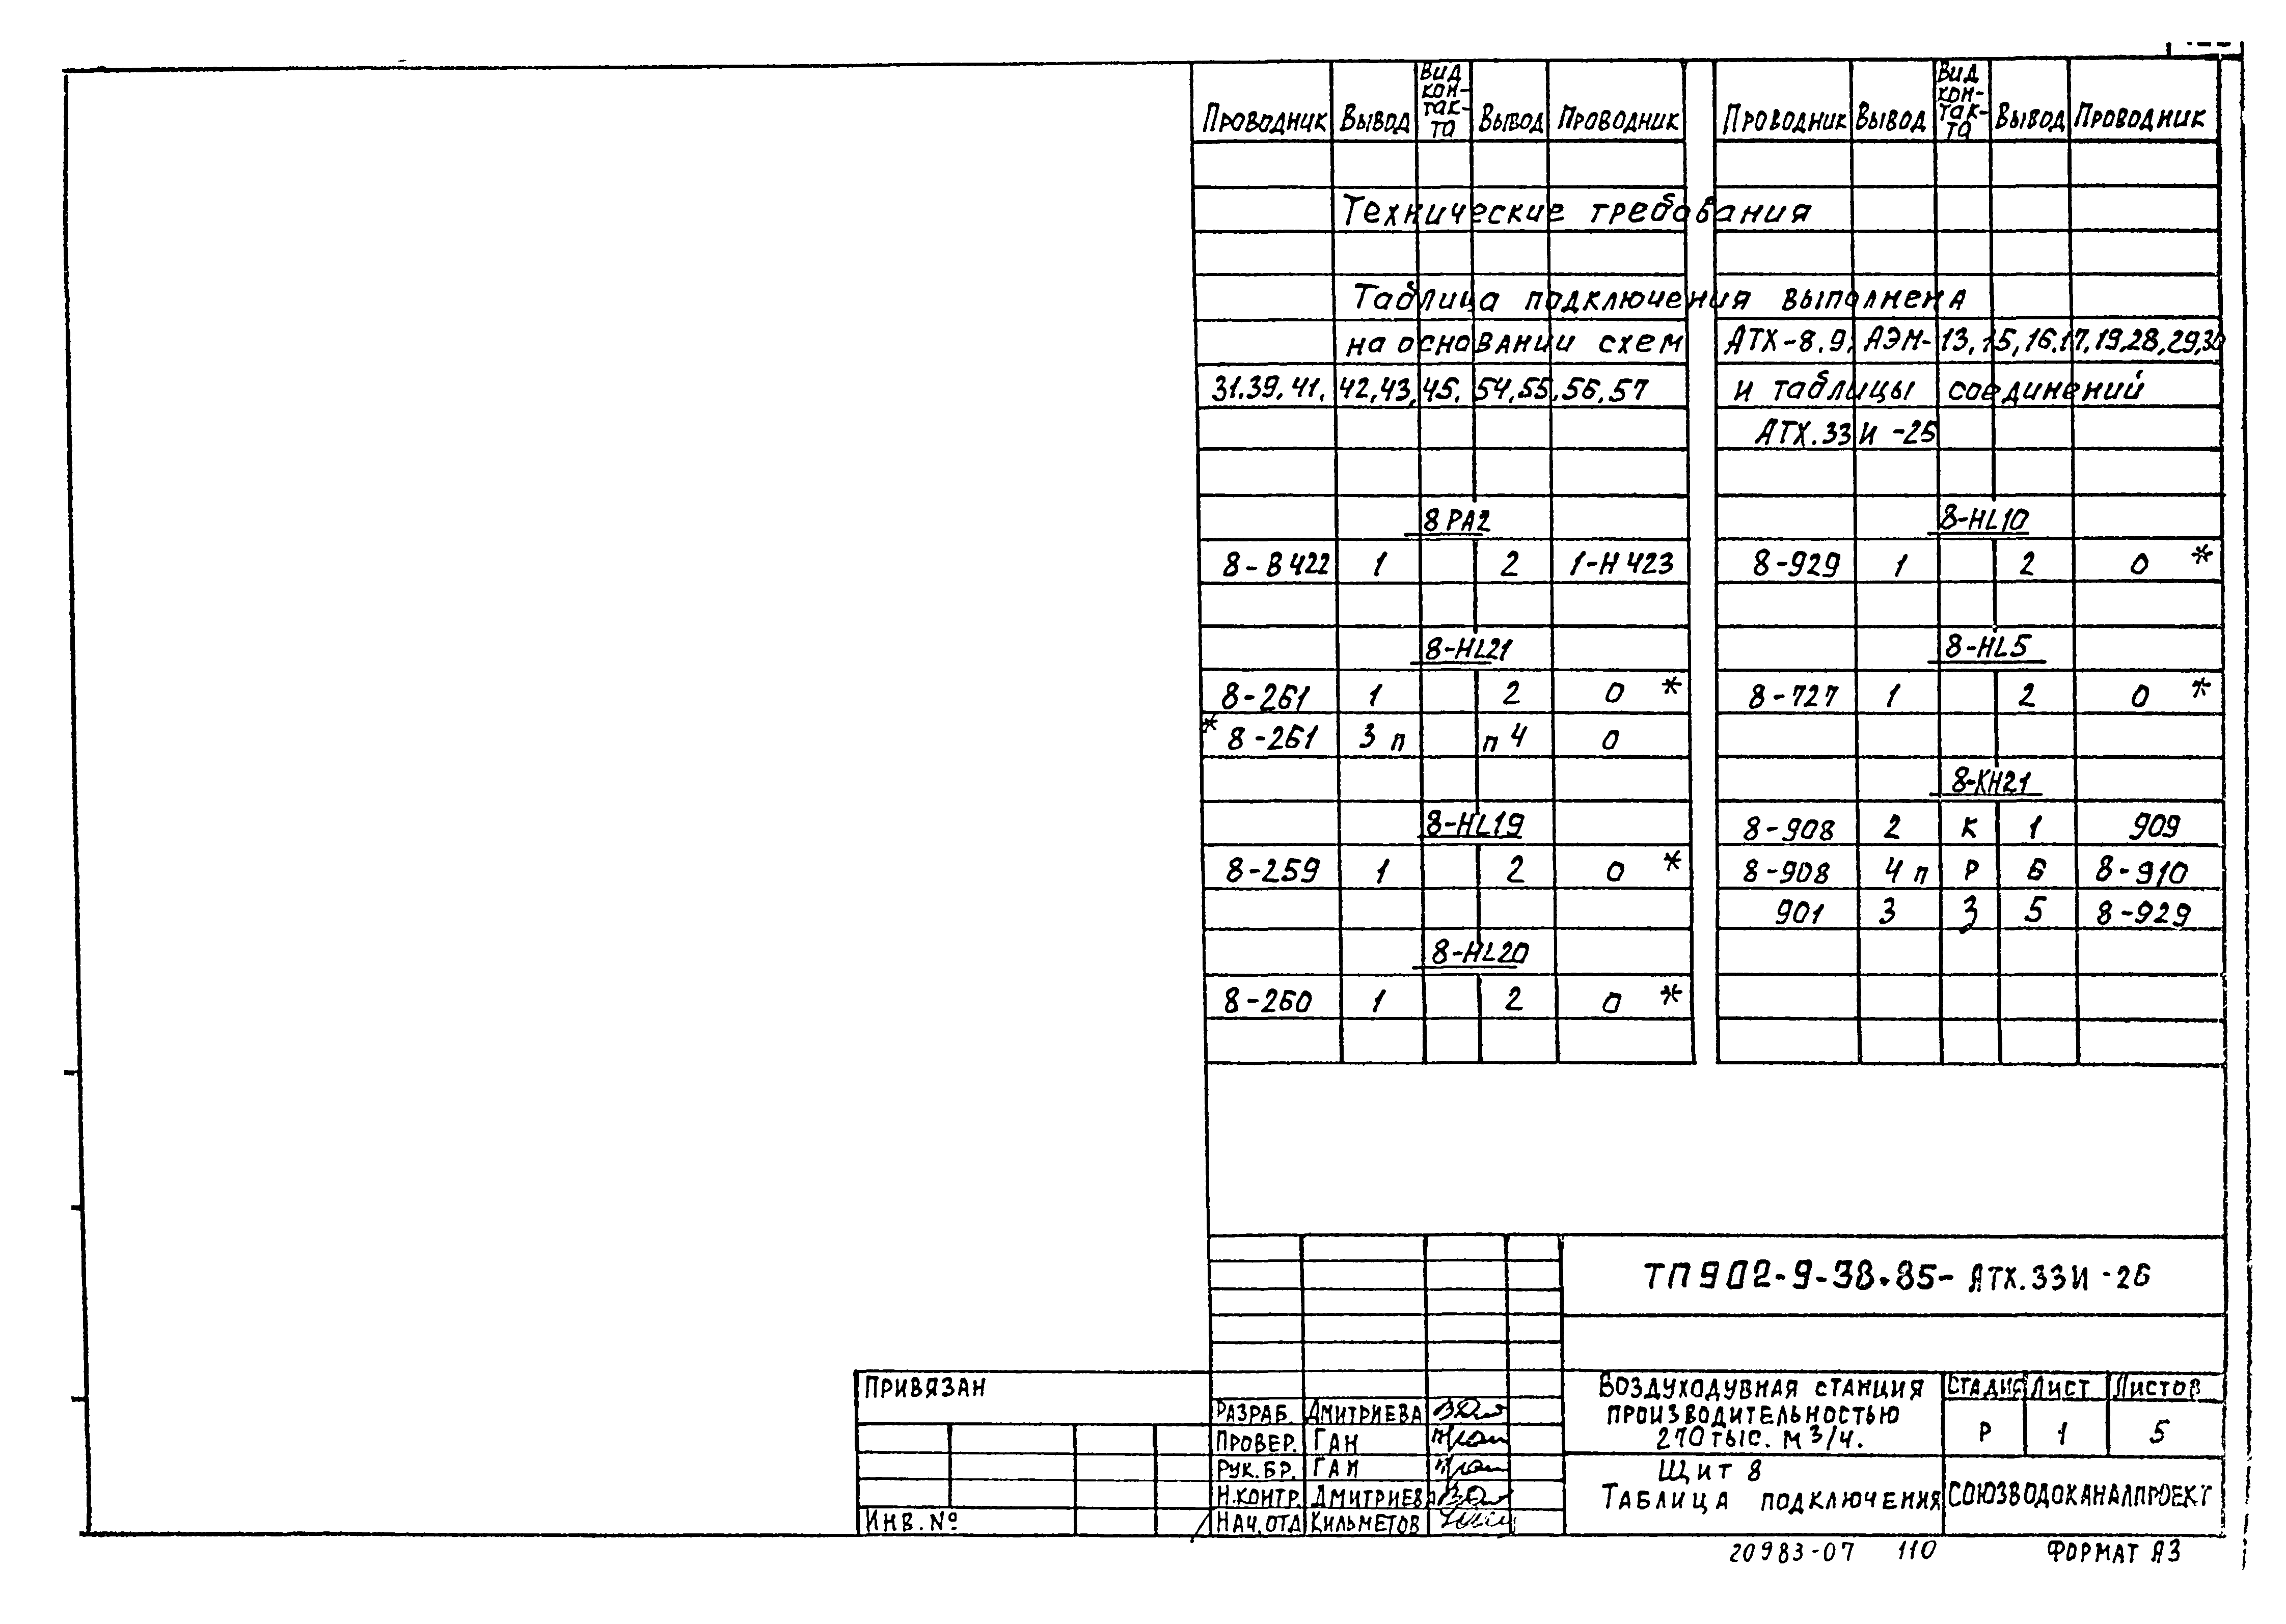 Проводник Вывод Вид кон-так-та Вывод Проводник
Технические требования
Таблица подключения выполнена
на основании схем АТХ-8.9, АЭМ-13,15,16,17,19,28,29,30
31.39.41. 42,43,45. 54,55,56,57 и таблицы соединений
АТХ.33И-25
8PA2
8-В422 1 2 1-Н423
8-HL21
8-261 1 2 0 *
* 8-261 3 п п 4 0
8-HL19
8-259 1 2 0 *
8-HL20
8-260 1 2 0 *
Проводник Вывод Вид кон-так-та Вывод Проводник
8-HL10
8-929 1 2 0 *
8-HL5
8-727 1 2 0 *
8-KH21
8-908 2 К 1 909
8-908 4 п Р 6 8-910
901 3 З 5 8-929
ТП902-9-38.85- АТХ.33И-26
ПРИВЯЗАН
ИНВ. №
РАЗРАБ. ДМИТРИЕВА
ПРОВЕР. ГАН
РУК.БР. ГАН
Н.КОНТР. ДМИТРИЕВА
НАЧ.ОТД КИЛЬМЕТОВ
ВОЗДУХОДУВНАЯ СТАНЦИЯ
ПРОИЗВОДИТЕЛЬНОСТЬЮ
270 ТЫС. М3/Ч.
СТАДИЯ ЛИСТ ЛИСТОВ
Р 1 5
ЩИТ 8
ТАБЛИЦА ПОДКЛЮЧЕНИЯ
СОЮЗВОДОКАНАЛПРОЕКТ
20983-07 110 ФОРМАТ А3